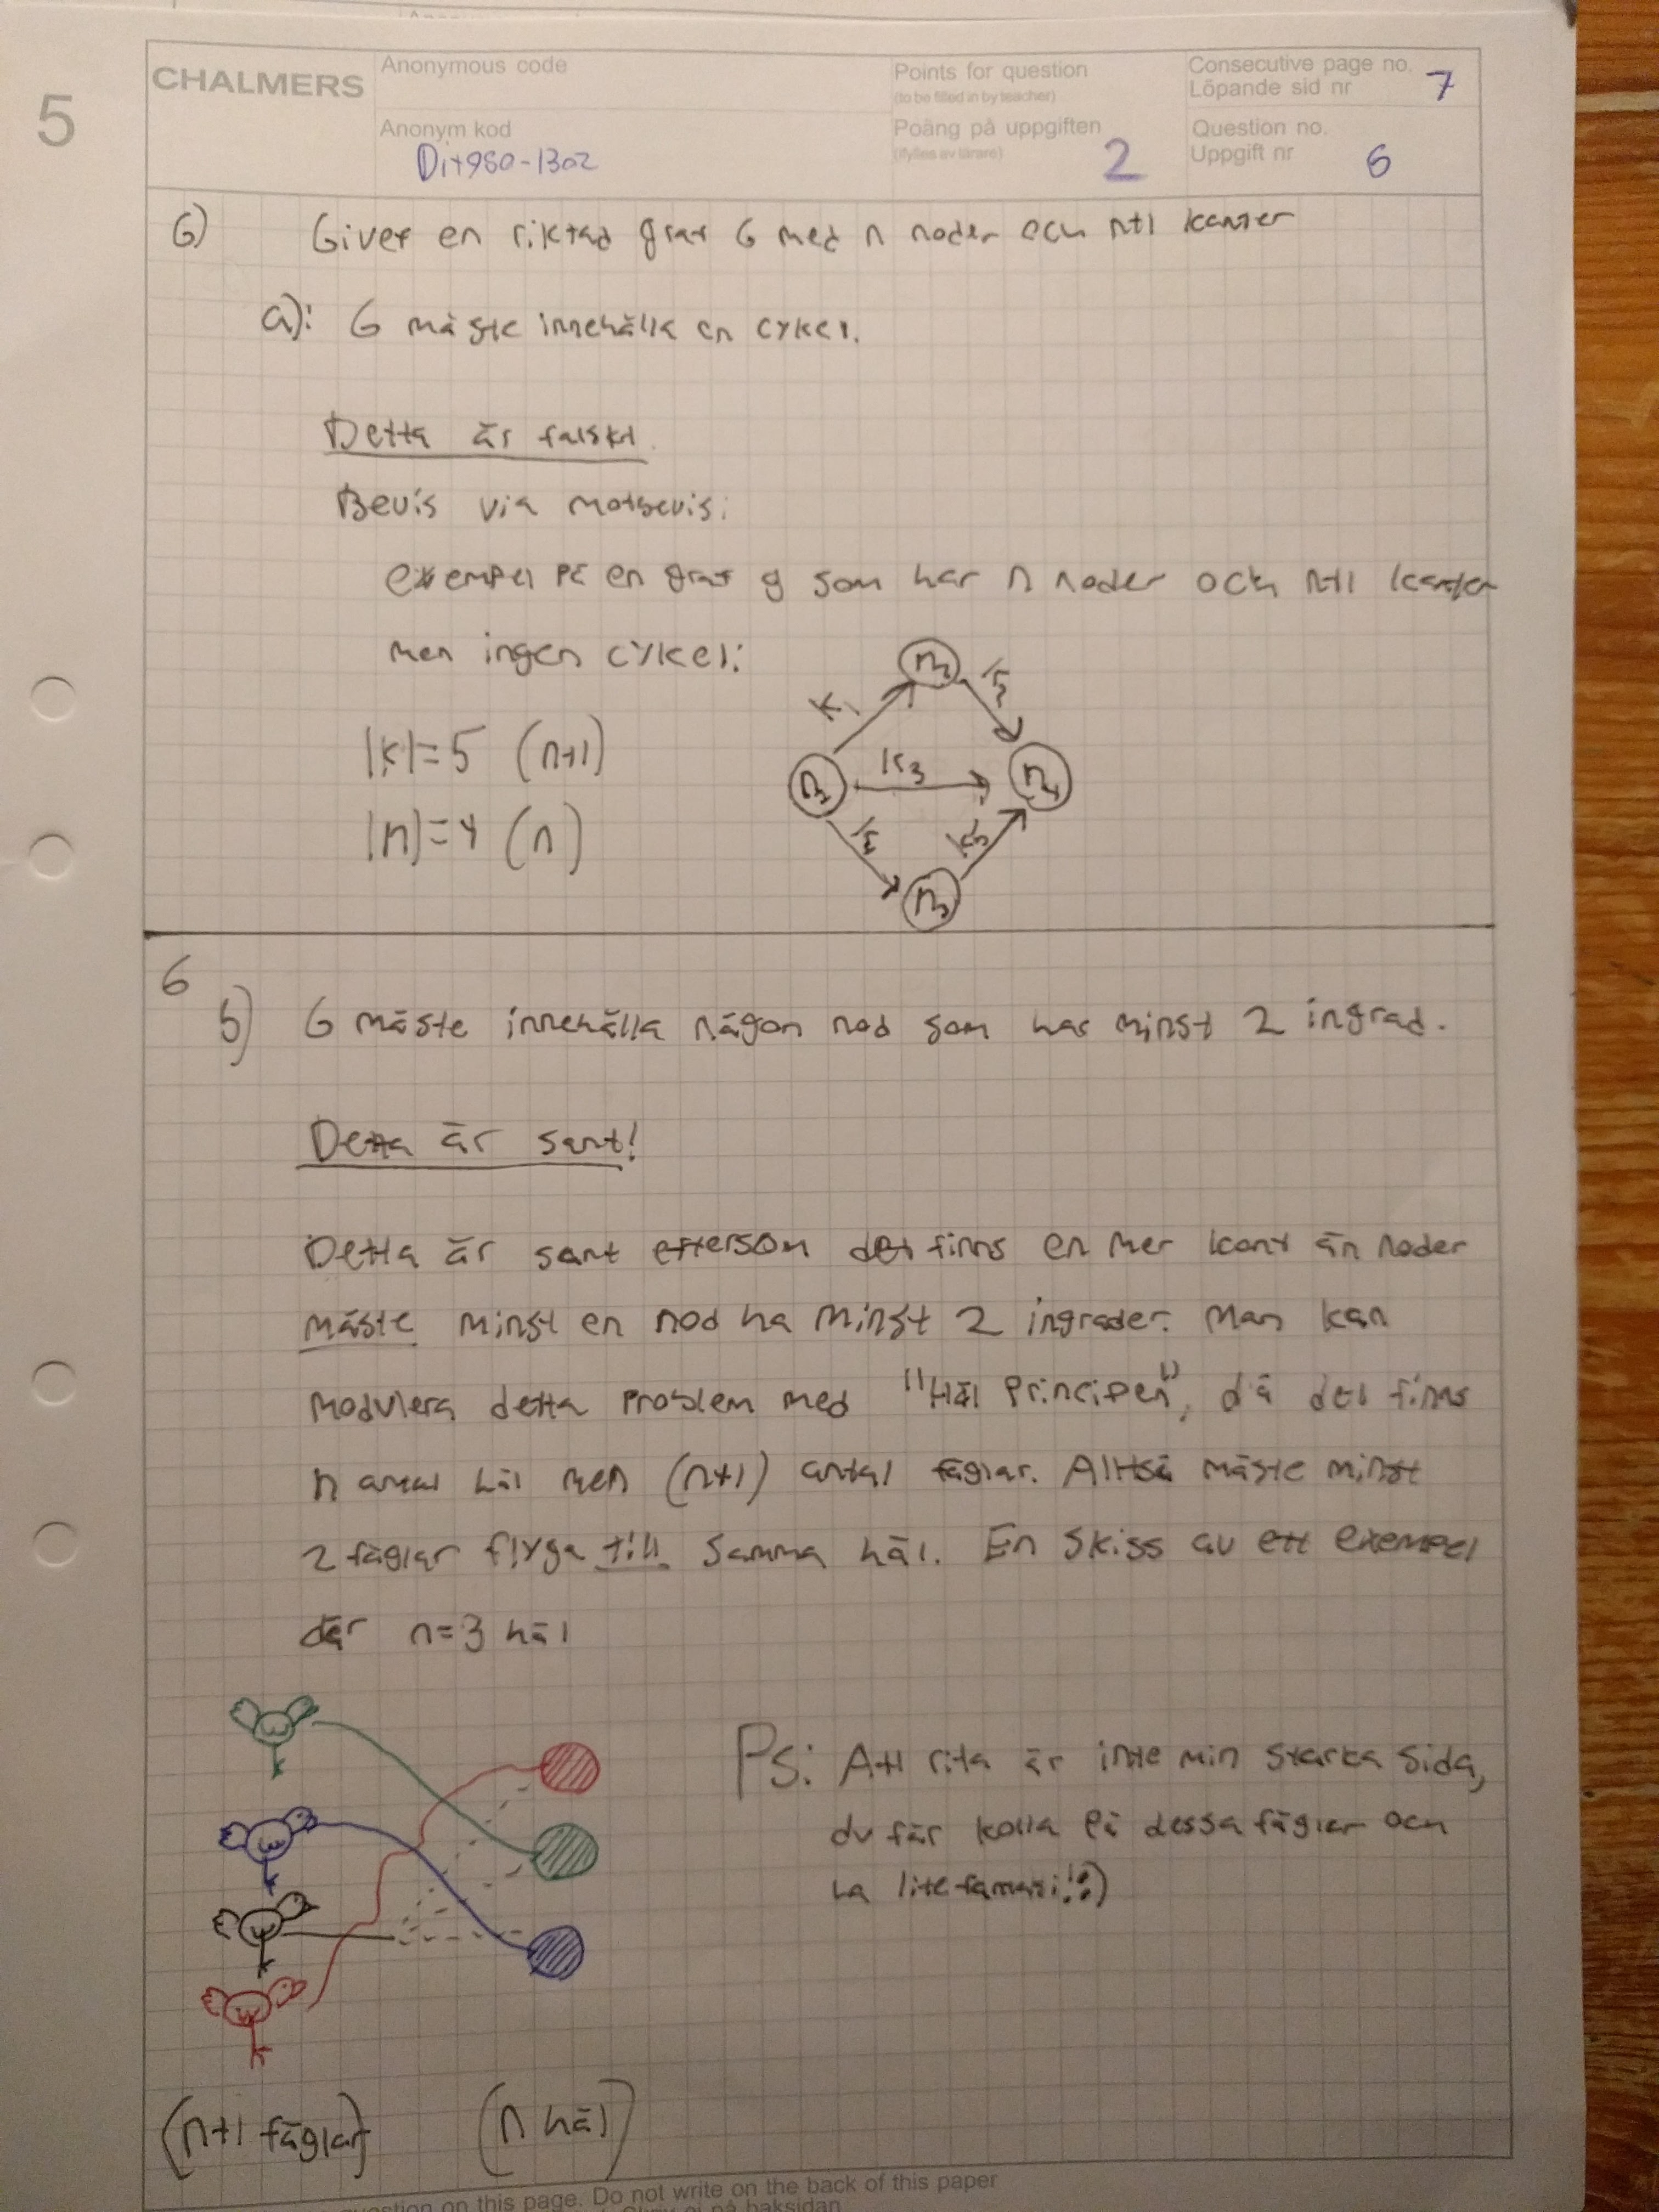 5
CHALMERS
Anonymous code
Anonym kod
Dit980-1302
Points for question
(to be filled in by teacher)
Poäng på uppgiften
(ifylles av lärare)
2
Consecutive page no.
Löpande sid nr
7
Question no.
Uppgift nr
6
6) Givet en riktad graf G med n noder och n+1 kanter
a): G måste innehålla en cykel.
Detta är falskt
Bevis via motbevis:
exempel på en graf g som har n noder och n+1 kanter
men ingen cykel:
|k|=5 (n+1)
|n|=4 (n)
k1
k3
k5
n1
n2
n3
n4
6
b) G måste innehålla någon nod som har minst 2 ingrad.
Detta är sant!
Detta är sant eftersom det finns en mer kant än noder
måste minst en nod ha minst 2 ingrader. Man kan
modulera detta problem med "Hål Principen", då det finns
n antal hål men (n+1) antal fåglar. Alltså måste minst
2 fåglar flyga till samma hål. En skiss av ett exempel
där n=3 hål
Ps: Att rita är inte min starka sida,
du får kolla på dessa fåglar och
ha lite fantasi! :)
(n+1 fåglar) (n hål)
question on this page. Do not write on the back of this paper